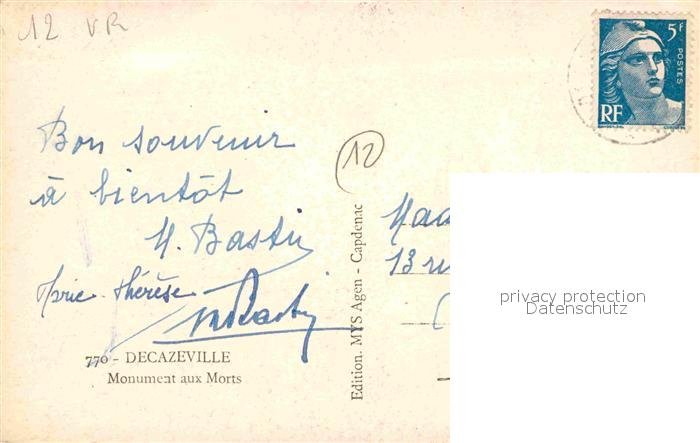 12 VR
5F
POSTES
RF
Bon souvenir
à bientôt
12
M. Bastié
Marie-Thérèse
770 - DECAZEVILLE
Monument aux Morts
Edition. MYS Agen - Capdenac
13
privacy protection
Datenschutz